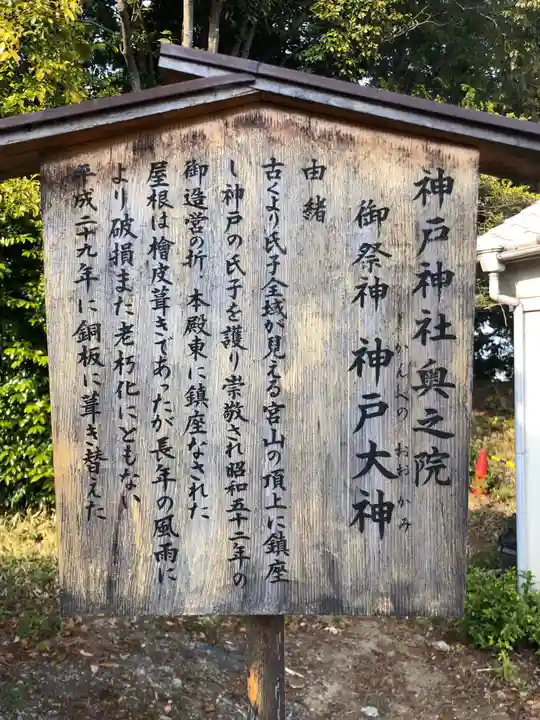 神戸神社奥之院
御祭神 神戸大神
かんべの おおかみ
由緒
古くより氏子全域が見える宮山の頂上に鎮座
し神戸の氏子を護り崇敬され昭和五十二年の
御造営の折、本殿東に鎮座なされた
屋根は檜皮葺きであったが長年の風雨に
より破損また老朽化にともない
平成二十九年に銅板に葺き替えた